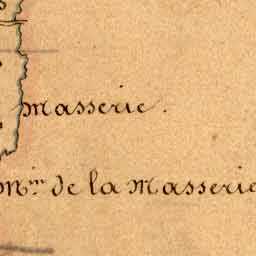 Masserie.
Mⁱⁿ de la Masserie